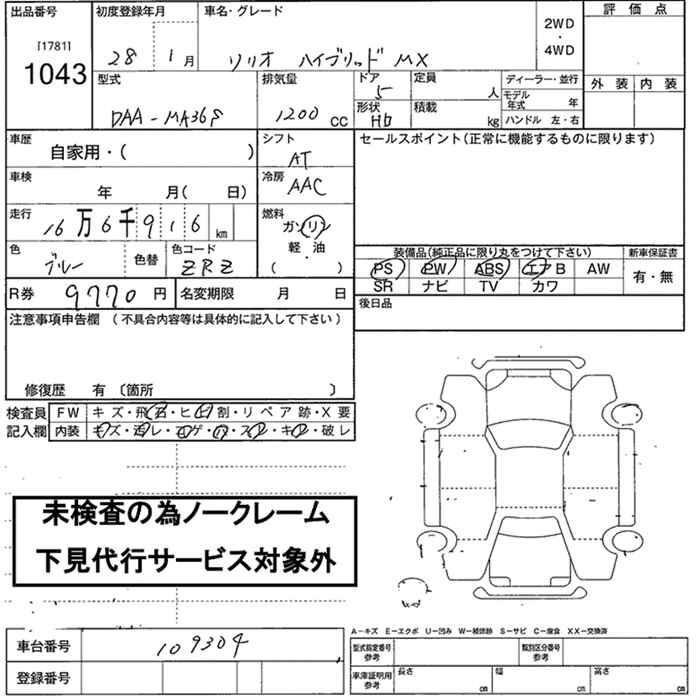 出品番号 初度登録年月 車名・グレード 2WD・4WD 評価点
[1781] 1043 28 1月 ソリオ ハイブリッド MX
外装 内装
型式 排気量 ドア 定員 ディーラー・並行
5 人 モデル年式 年
DAA-MA36S 1200cc 形状 積載 ハンドル 左・右
HB kg
車歴 自家用・( ) シフト AT セールスポイント(正常に機能するものに限ります)
車検 年 月( 日) 冷房 AAC
走行 16万6千916km 燃料 ガソリン
軽・油
( )
色 ブルー 色替 色コード ZRZ
装備品(純正品に限り丸をつけて下さい) 新車保証書
PS PW ABS エアB AW 有・無
SR ナビ TV カワ
R券 9770円 名変期限 月 日 後日品
注意事項申告欄(不具合内容等は具体的に記入して下さい)
修復歴 有〔箇所 〕
検査員 FW キズ・飛石・ヒビ割・リペア跡・X要
記入欄 内装 キズ・汚レ・コゲ・穴・スレ・キレ・破レ
未検査の為ノークレーム
下見代行サービス対象外
A-キズ E-エクボ U-凹み W-補修跡 S-サビ C-腐食 XX-交換済
車台番号 109304 型式指定番号参考 類別区分番号参考
登録番号 車庫証明用参考 長さ cm 幅 cm 高さ cm